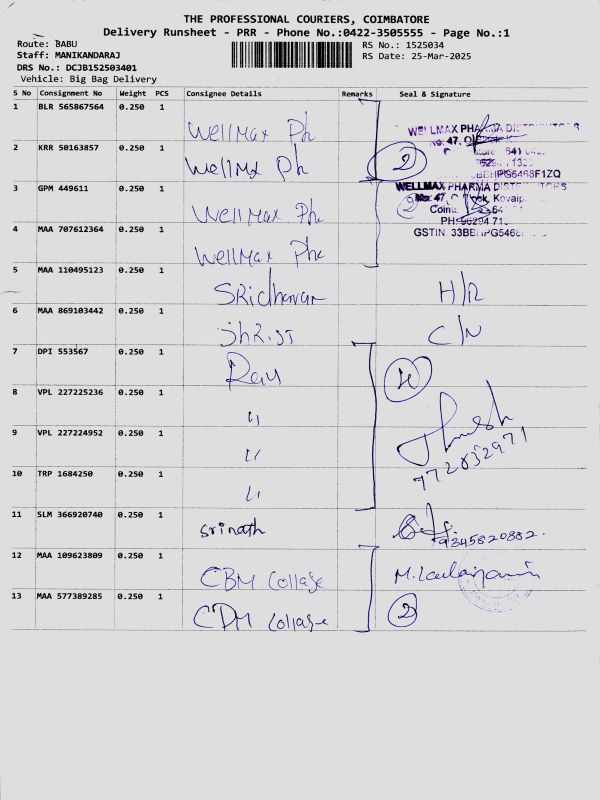 THE PROFESSIONAL COURIERS, COIMBATORE
Delivery Runsheet - PRR - Phone No.:0422-3505555 - Page No.:1
Route: BABU RS No.: 1525034
Staff: MANIKANDARAJ RS Date: 25-Mar-2025
DRS No.: DCJB152503401
Vehicle: Big Bag Delivery
S No Consignment No Weight PCS Consignee Details Remarks Seal & Signature
1 BLR 565867564 0.250 1 Wellmax Ph
WELLMAX PHARMA DIST
No: 47,
2 KRR 50163857 0.250 1 Wellmx Ph 2
3 GPM 449611 0.250 1 Wellmax Ph 2
WELLMAX PHARMA DIST
No: 47, Kovaip
4 MAA 707612364 0.250 1 Wellmax Pha
5 MAA 110495123 0.250 1 Sridharan H/R
6 MAA 869103442 0.250 1 C/N
7 DPI 553567 0.250 1 Ravi
8 VPL 227225236 0.250 1 〃
9 VPL 227224952 0.250 1 〃 772032971
10 TRP 1684250 0.250 1 〃
11 SLM 366920740 0.250 1 Srinath 9345820882.
12 MAA 109623809 0.250 1 CBM Collage
13 MAA 577389285 0.250 1 CDM Collage 2